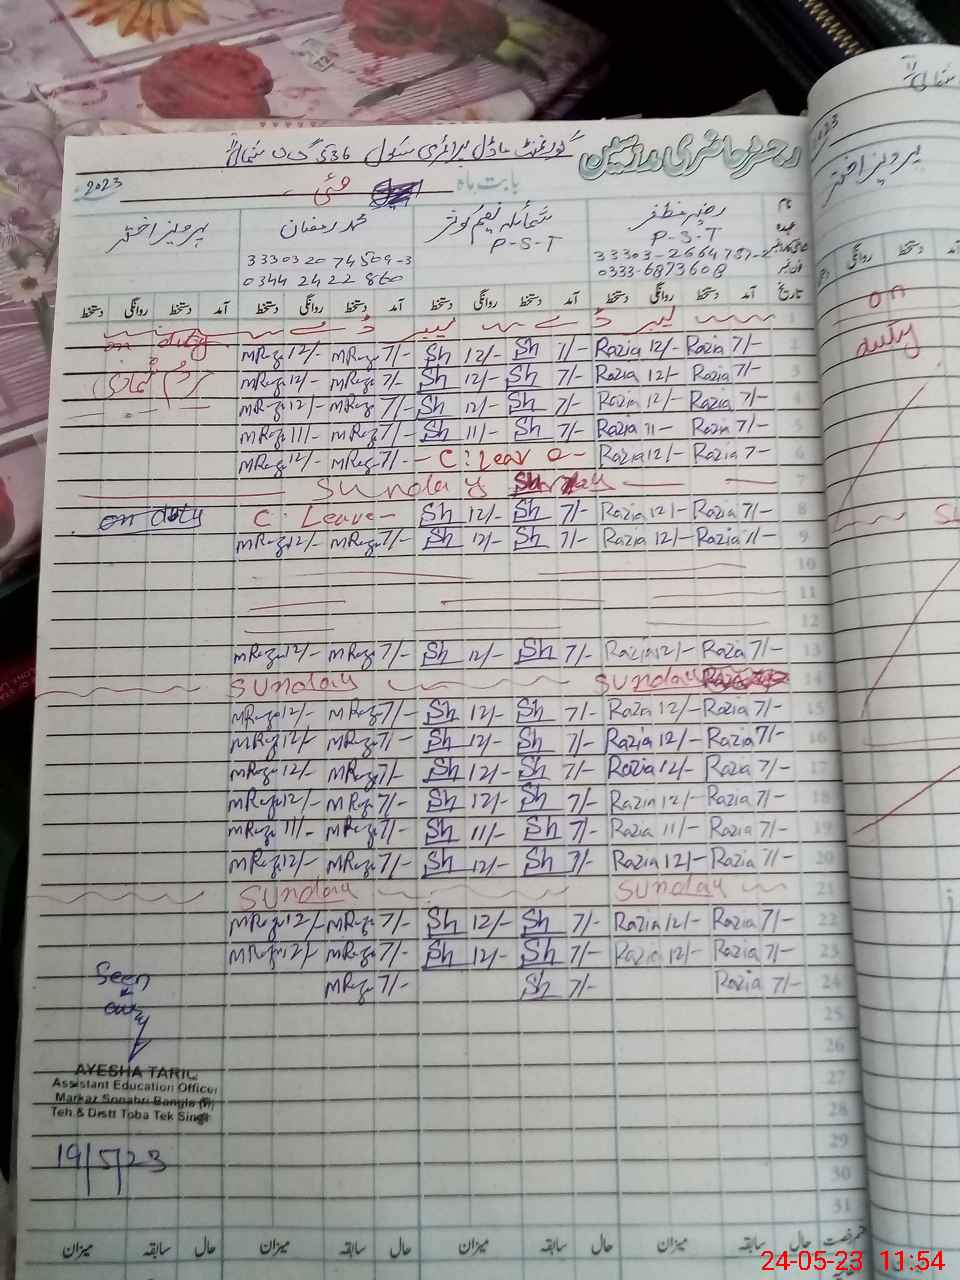 رجسٹر حاضری مدرسین
گورنمنٹ ماڈل پرائمری سکول 536 گ ب شمالی
بابت ماہ مئی 2023
نام رضیہ مظفر شمائلہ نعیم کوثر محمد رمضان پرویز اختر
عہدہ P-S-T P-S-T
33303-2664787-2 3330320 74509-3
فون نمبر 0333-6873608 0344 2422 860
تاریخ آمد دستخط روانگی دستخط آمد دستخط روانگی دستخط آمد دستخط روانگی دستخط آمد دستخط روانگی دستخط
1
on duty MRaza 12/- MRaza 7/- Sh 12/- Sh 7/- Razia 12/- Razia 7/- 2
MRaza 12/- MRaza 7/- Sh 12/- Sh 7/- Razia 12/- Razia 7/- 3
MRaza 12/- MRaza 7/- Sh 12/- Sh 7/- Razia 12/- Razia 7/- 4
MRaza 11/- MRaza 7/- Sh 11/- Sh 7/- Razia 11- Razia 7/- 5
MRaza 12/- MRaza 7/- - C: Leave - Razia 12/- Razia 7- 6
Sunday Sunday 7
on duty C. Leave- Sh 12/- Sh 7/- Razia 12/- Razia 7/- 8
MRaza 12/- MRaza 7/- Sh 12/- Sh 7/- Razia 12/- Razia 7/- 9
10
11
12
MRaza 12/- MRaza 7/- Sh 12/- Sh 7/- Razia 12/- Razia 7/- 13
Sunday Sunday 14
MRaza 12/- MRaza 7/- Sh 12/- Sh 7/- Razia 12/- Razia 7/- 15
MRaza 12/- MRaza 7/- Sh 12/- Sh 7/- Razia 12/- Razia 7/- 16
MRaza 12/- MRaza 7/- Sh 12/- Sh 7/- Razia 12/- Razia 7/- 17
MRaza 12/- MRaza 7/- Sh 12/- Sh 7/- Razia 12/- Razia 7/- 18
MRaza 11/- MRaza 7/- Sh 11/- Sh 7/- Razia 11/- Razia 7/- 19
MRaza 12/- MRaza 7/- Sh 12/- Sh 7/- Razia 12/- Razia 7/- 20
Sunday Sunday 21
MRaza 12/- MRaza 7/- Sh 12/- Sh 7/- Razia 12/- Razia 7/- 22
MRaza 12/- MRaza 7/- Sh 12/- Sh 7/- Razia 12/- Razia 7/- 23
MRaza 7/- Sh 7/- Razia 7/- 24
Seen
25
26
27
28
29
30
31
AYESHA TARIQ
Assistant Education Officer
Markaz Sonahri Bangla
Teh & Distt Toba Tek Singh
19/5/23
حال سابقہ میزان حال سابقہ میزان حال سابقہ میزان حال سابقہ میزان
پرویز اختر
روانگی دستخط
on
duty
24-05-23 11:54